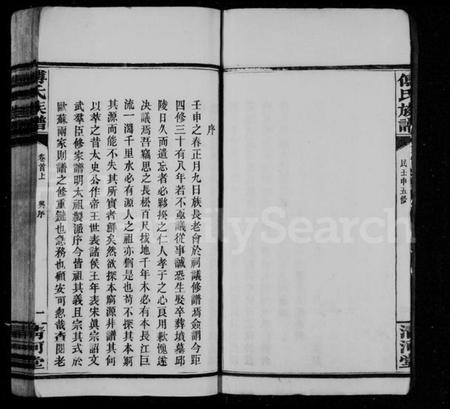 傅氏族譜
民壬申五修
清河堂
序
壬申之春正月九日族長老會於祠議修譜焉僉謂今距
四修三十有八年若不亟議從事誠恐生娶卒葬墳墓邱
陵日久而遺忘者必夥揆之仁人孝子之心良用歉愧遂
決議焉吾竊思之長松百尺拔地千年木必有本長江巨
流一瀉千里水必有源人之祖亦猶是也苟不探其本窮
其源而能不失其所實者鮮矣然欲探本窮源非譜其何
以萃之昔太史公作帝王世表諸侯王年表宋真宗詔文
武羣臣修家譜明太祖製派序今皆祖其義且宗其式於
歐蘇兩家則譜之修重鎮也急務也顧安可忽哉查閱老
傅氏族譜
卷首上
舊序
一
清河堂
FamilySearch